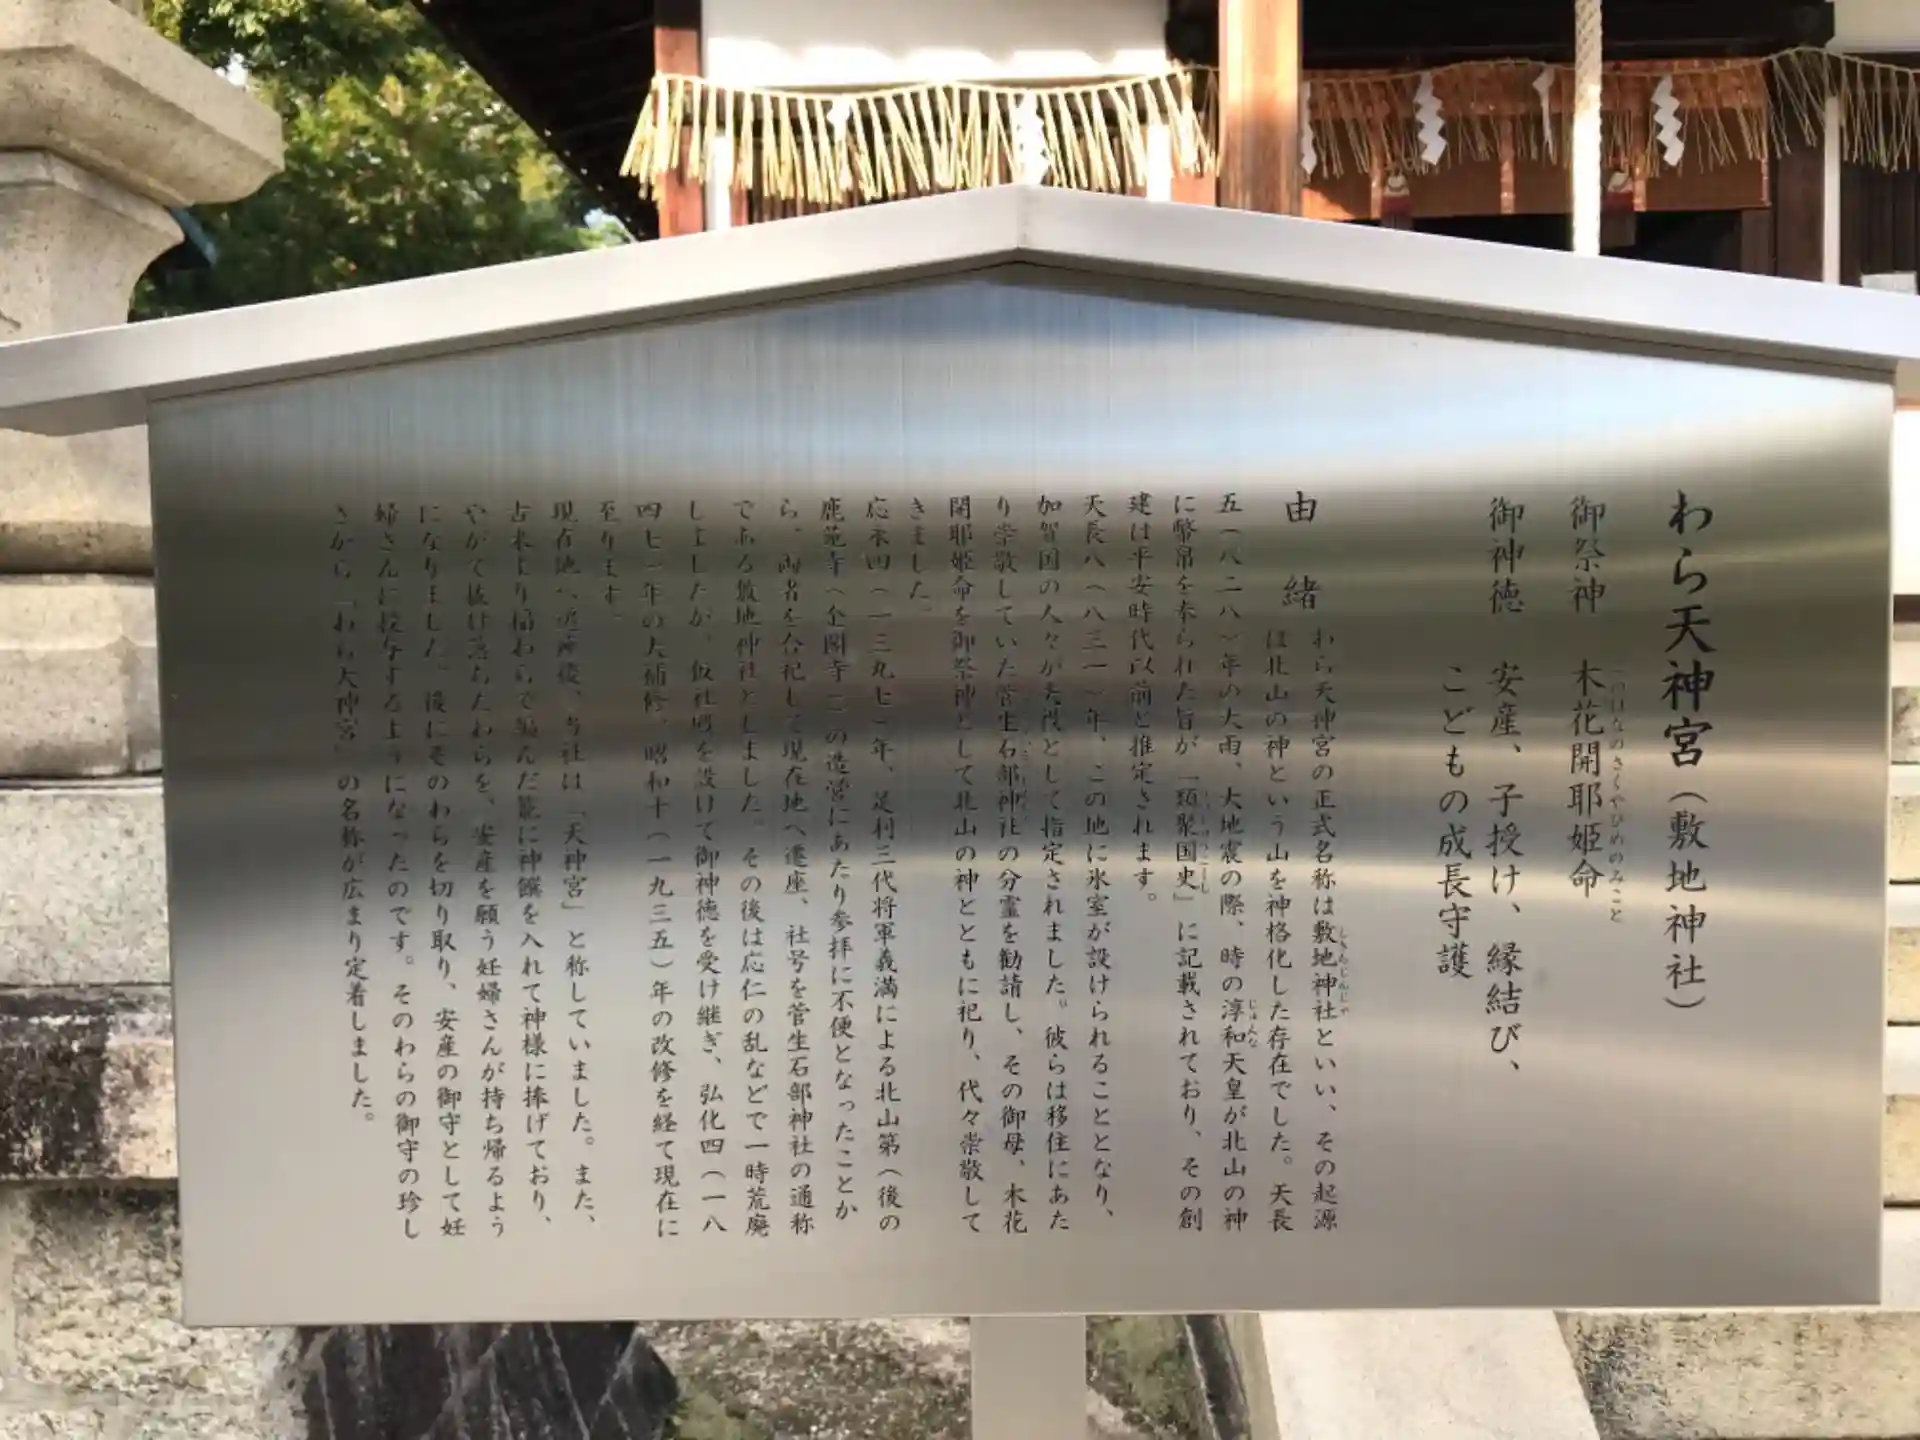 わら天神宮（敷地神社）
御祭神　木花開耶姫命
このはなのさくやひめのみこと
御神徳　安産、子授け、縁結び、
こどもの成長守護
由　緒
わら天神宮の正式名称は敷地神社といい、その起源
しきちじんじゃ
は北山の神という山を神格化した存在でした。天長
五（八二八）年の大雨、大地震の際、時の淳和天皇が北山の神
じゅんな
に幣帛を奉られた旨が「類聚国史」に記載されており、その創
るいじゅうこくし
建は平安時代以前と推定されます。
天長八（八三一）年、この地に氷室が設けられることとなり、
加賀国の人々が夫役として指定されました。彼らは移住にあた
り崇敬していた菅生石部神社の分霊を勧請し、その御母、木花
開耶姫命を御祭神として北山の神とともに祀り、代々崇敬して
きました。
応永四（一三九七）年、足利三代将軍義満による北山第（後の
鹿苑寺（金閣寺））の造営にあたり参拝に不便となったことか
ら、両者を合祀して現在地へ遷座、社号を菅生石部神社の通称
である敷地神社としました。その後は応仁の乱などで一時荒廃
しましたが、仮社殿を設けて御神徳を受け継ぎ、弘化四（一八
四七）年の大補修、昭和十（一九三五）年の改修を経て現在に
至ります。
現在地へ遷座後、当社は「天神宮」と称していました。また、
古来より稲わらで編んだ籠に神饌を入れて神様に捧げており、
やがて抜け落ちたわらを、安産を願う妊婦さんが持ち帰るよう
になりました。後にそのわらを切り取り、安産の御守として妊
婦さんに授与するようになったのです。そのわらの御守の珍し
さから「わら天神宮」の名称が広まり定着しました。